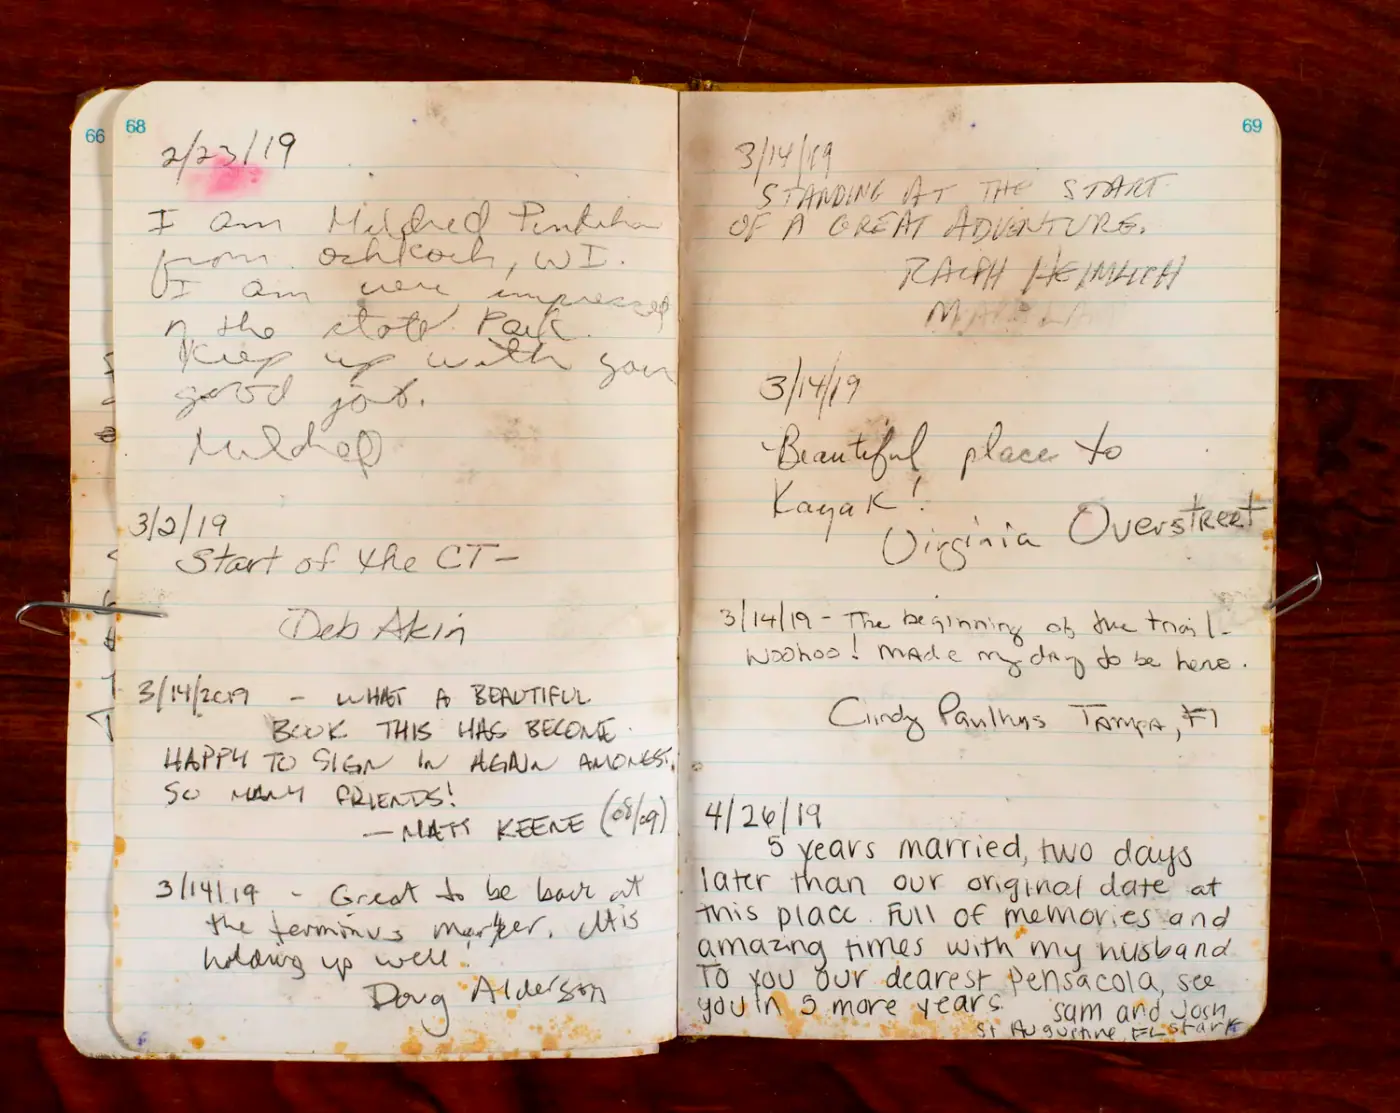 66
68
2/23/19
I am Mildred
from Oshkosh, WI.
I am very impressed
n the state Park.
Keep up with your
good job.
Mildred
3/2/19
Start of the CT-
Deb Akin
3/14/2019 - WHAT A BEAUTIFUL
BOOK THIS HAS BECOME.
HAPPY TO SIGN IN AGAIN AMONGST
SO MANY FRIENDS!
- MATT KEENE (08/09)
3/14/19 - Great to be back at
the terminus marker. It is
holding up well.
Doug Alderson
69
3/14/19
STANDING AT THE START
OF A GREAT ADVENTURE.
RALPH HEIMLICH
3/14/19
Beautiful place to
Kayak!
Virginia Overstreet
3/14/19 - The beginning of the trail -
WooHoo! Made my day to be here.
Cindy Tampa, Fl
4/26/19
5 years married, two days
later than our original date at
this place. Full of memories and
amazing times with my husband
To you our dearest Pensacola, see
you in 5 more years
Sam and Josh
St Augustine, FL Stark